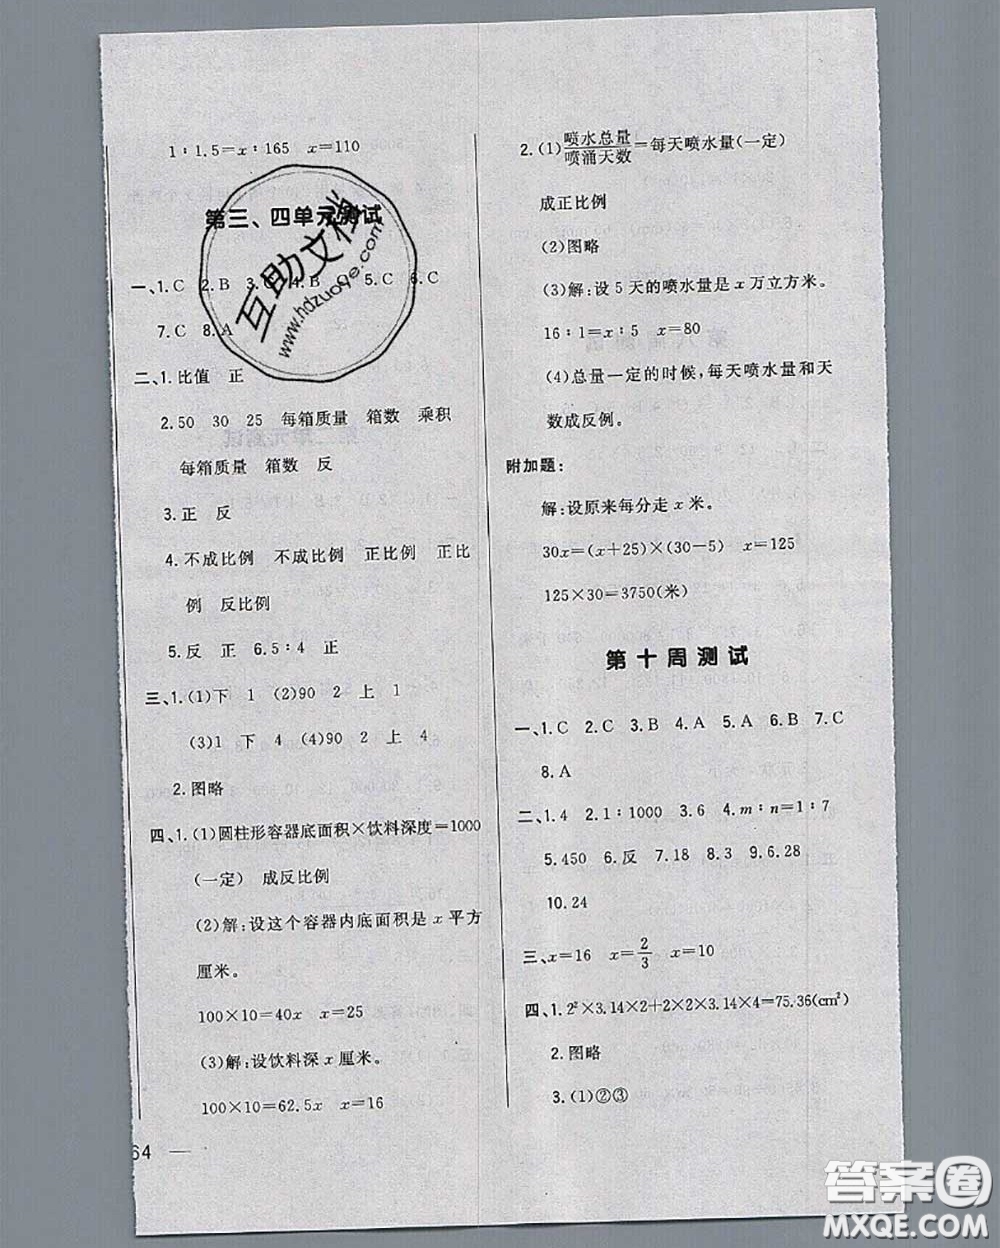 1∶1.5=x∶165 x=110
第三、四单元测试
一、1.C 2.B 3.C 4.B 5.C 6.C
7.C 8.A
二、1.比值 正
2.50 30 25 每箱质量 箱数 乘积
每箱质量 箱数 反
3.正 反
4.不成比例 不成比例 正比例 正比
例 反比例
5.反 正 6.5∶4 正
三、1.(1)下 1 (2)90 2 上 1
(3)1 下 4 (4)90 2 上 4
2.图略
四、1.(1)圆柱形容器底面积×饮料深度=1000
(一定) 成反比例
(2)解:设这个容器内底面积是 x 平方
厘米。
100×10=40x x=25
(3)解:设饮料深 x 厘米。
100×10=62.5x x=16
64
2.(1)喷水总量/喷涌天数=每天喷水量(一定)
成正比例
(2)图略
(3)解:设 5 天的喷水量是 x 万立方米。
16∶1=x∶5 x=80
(4)总量一定的时候,每天喷水量和天
数成反例。
附加题:
解:设原来每分走 x 米。
30x=(x+25)×(30-5) x=125
125×30=3750(米)
第十周测试
一、1.C 2.C 3.B 4.A 5.A 6.B 7.C
8.A
二、1.4 2.1∶1000 3.6 4.m∶n=1∶7
5.450 6.反 7.18 8.3 9.6.28
10.24
三、x=16 x=2/3 x=10
四、1.2²×3.14×2+2×2×3.14×4=75.36(cm²)
2.图略
3.(1)②③
互助文档
www.hdzuoye.com
答案圈
MXQE.COM